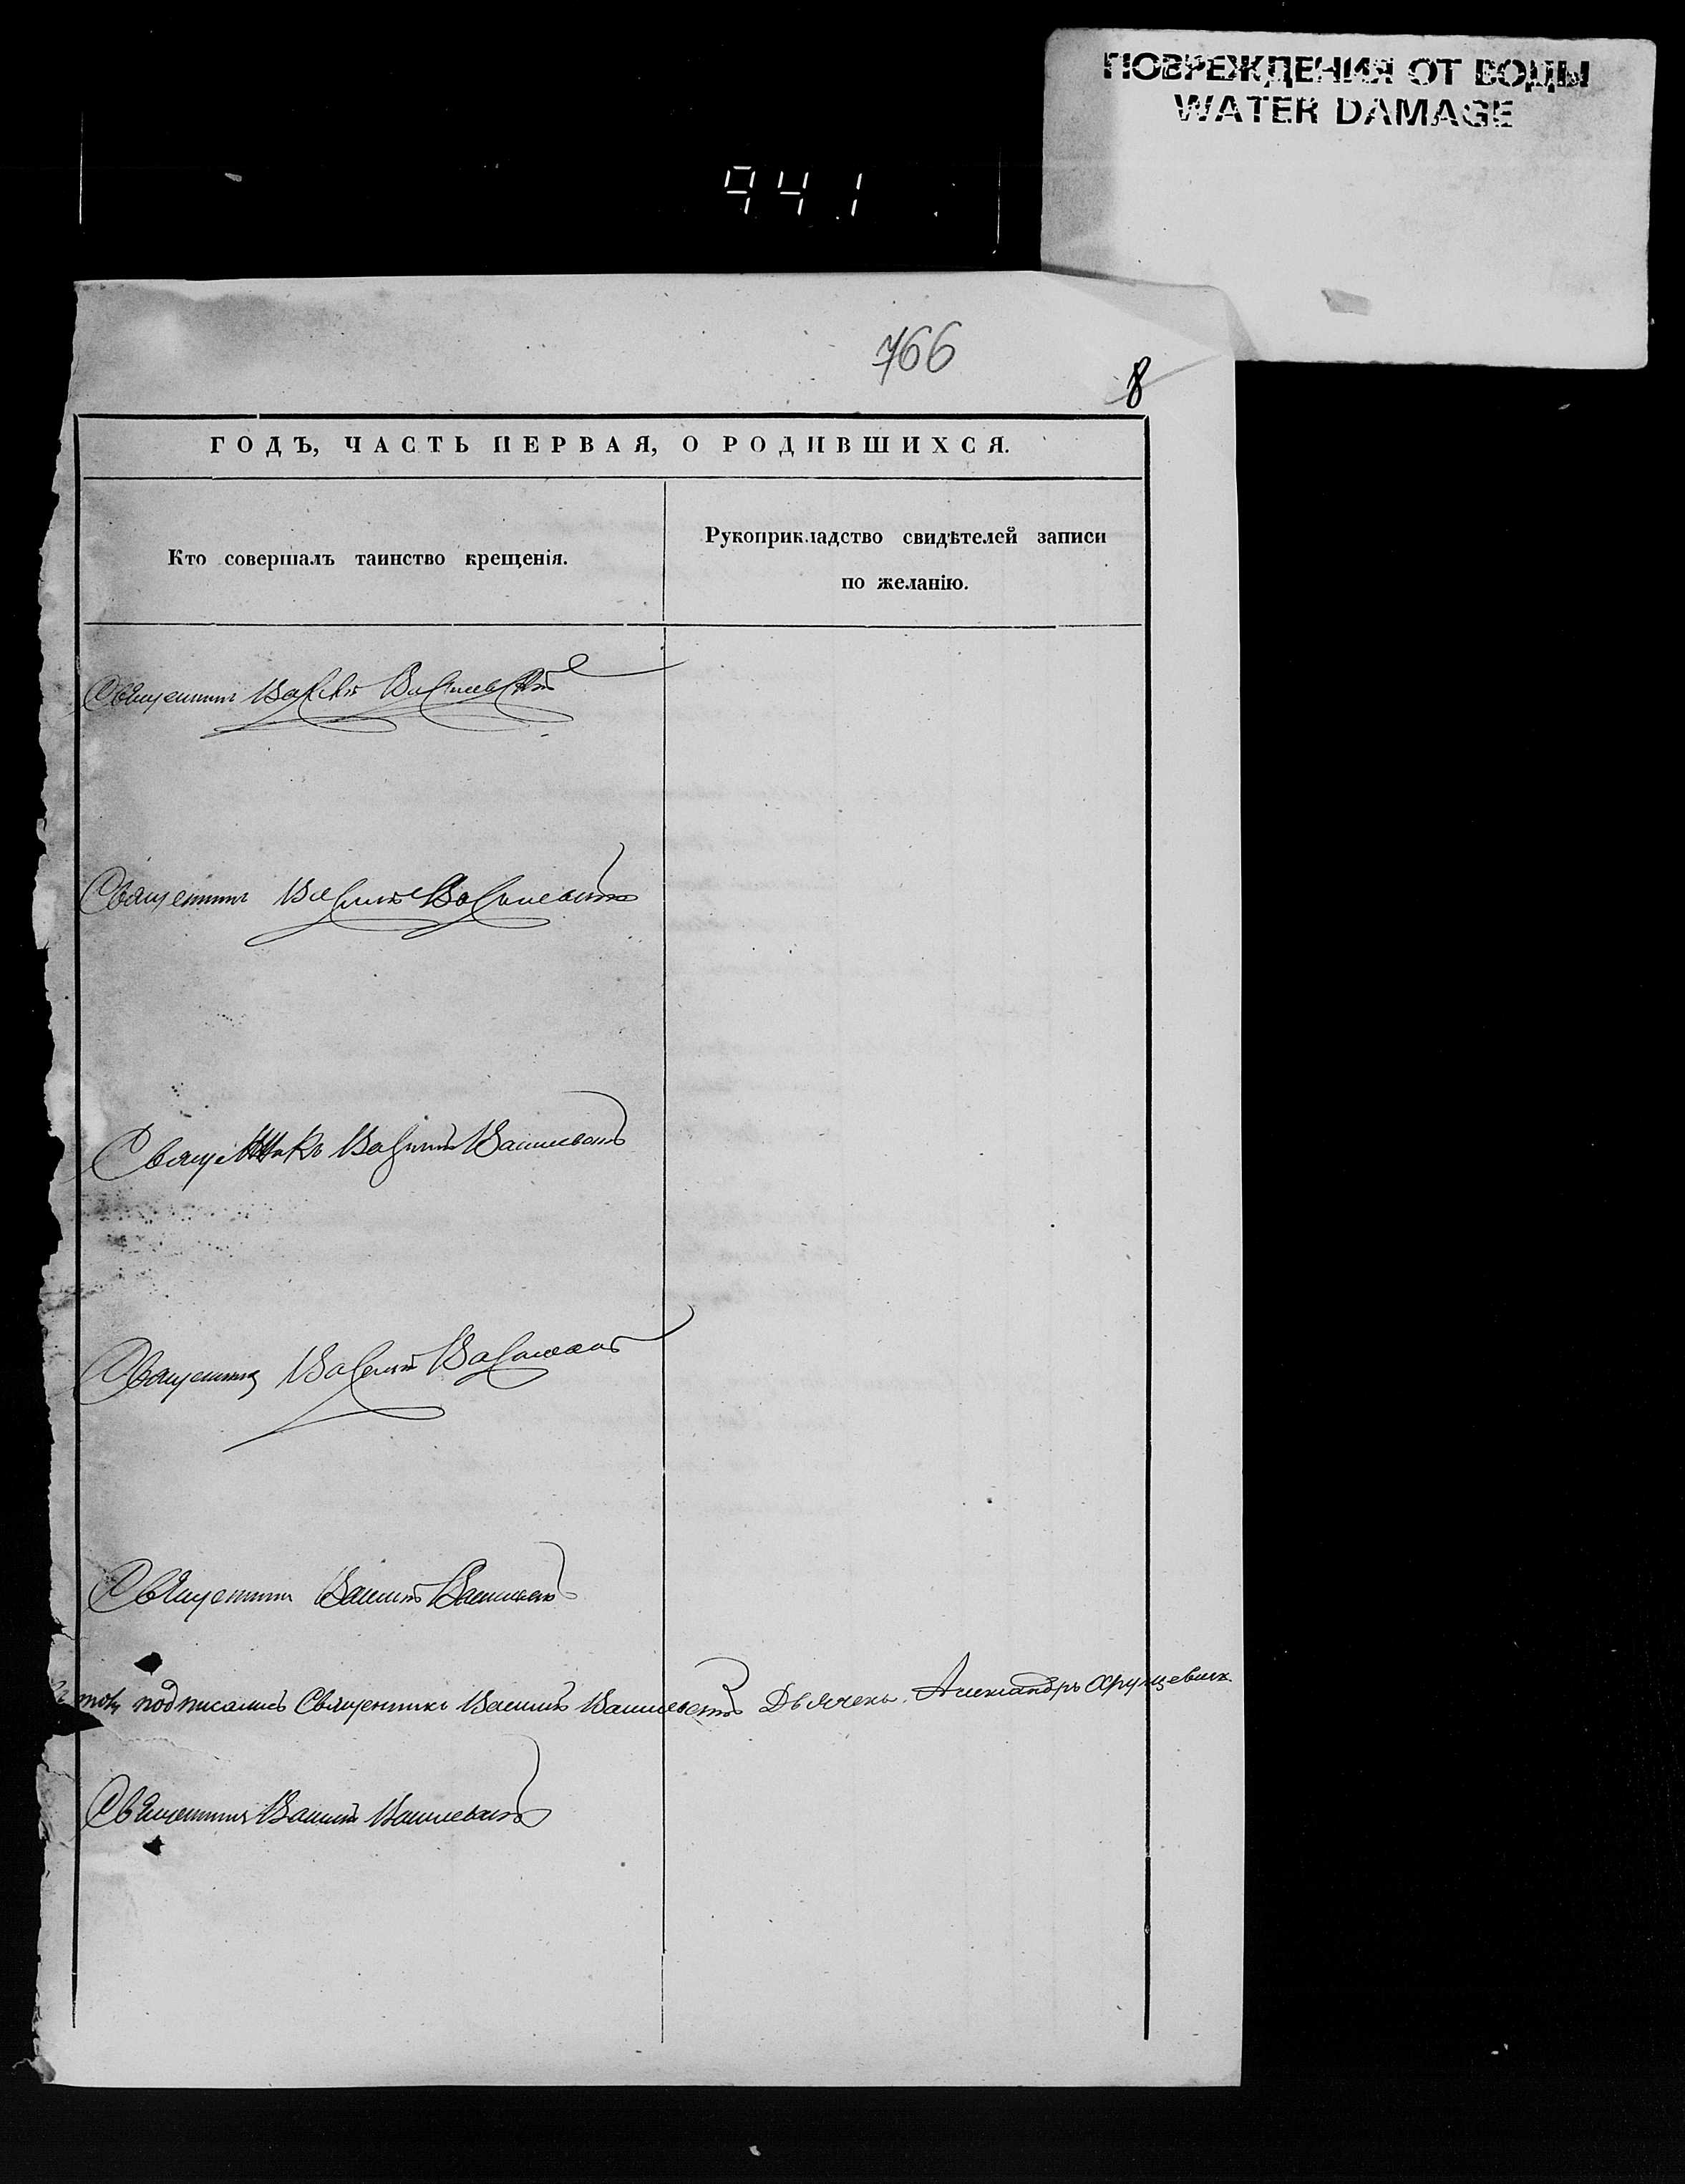 ПОВРЕЖДЕНИЯ ОТ ВОДЫ
WATER DAMAGE
941
766
8
ГОДЪ, ЧАСТЬ ПЕРВАЯ, О РОДИВШИХСЯ.
Кто совершалъ таинство крещенія.
Рукоприкладство свидѣтелей записи
по желанію.
Священникъ Василій Василевскій
Священникъ Василій Василевскій
Священникъ Василій Василевскій
Священникъ Василій Василевскій
Священникъ Василій Василевскій
подписались Священникъ Василій Василевскій Дьячекъ Александръ
Священникъ Василій Василевскій